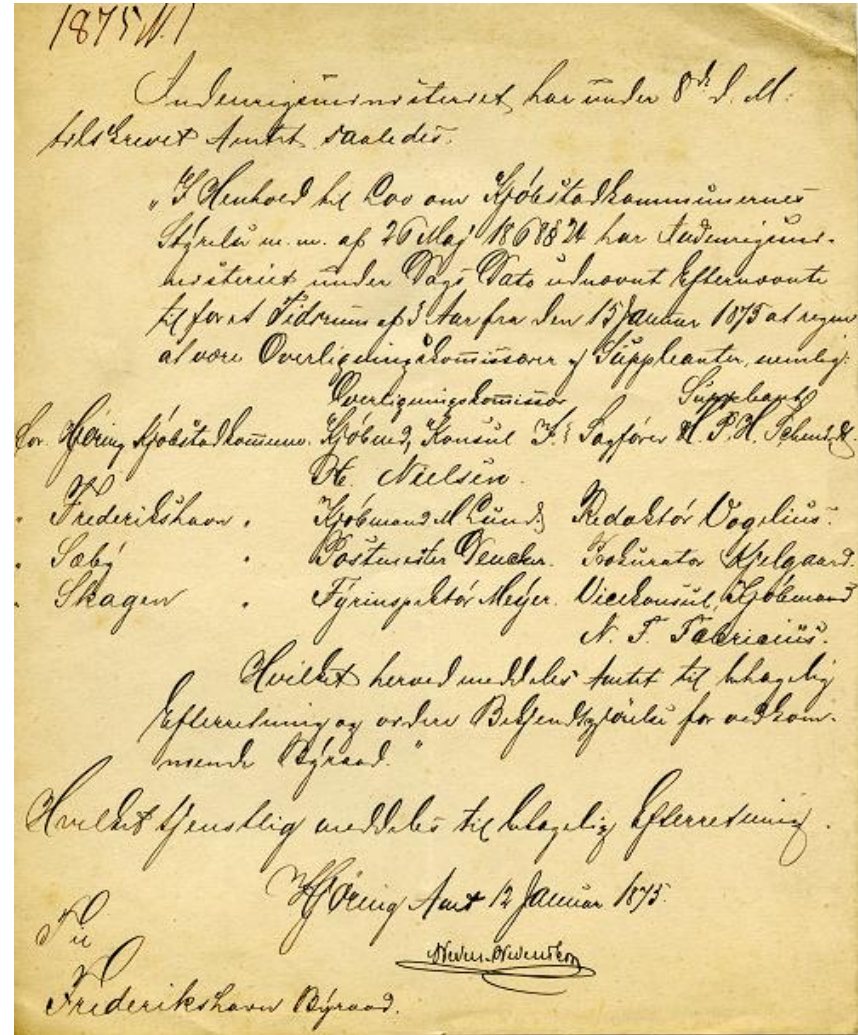 1875 N. 1
Indenrigsministeriet har under 8de d. M.
tilskrevet Amtet saaledes:
"I Henhold til Lov om Kjøbstadkommunernes
Styrelse m. m. af 26 Maj 1868 § 24 har Indenrigsmi-
nisteriet under Dags Dato udnævnt Efternævnte
til for et Tidsrum af 3 Aar fra den 15 Januar 1875 at regne
at være Overligningskommissærer og Suppleanter, nemlig:
Overligningskommissær Suppleant
for Hjøring Kjøbstadkommune. Kjøbmd, Konsul F. Sagfører H. P. H. Schmidt.
H. Nielsen.
" Frederikshavn " Kjøbmand M Lund Redaktør Vogelius.
" Sæby " Postmester Dencker. Prokurator Kjelgaard.
" Skagen " Fyrinspektør Meyer. Vicekonsul, Kjøbmand
N. F. Fabricius.
Hvilket herved meddeles Amtet til behagelig
Efterretning og videre Bekjendtgjørelse for vedkom-
mende Byraad."
Hvilket tjenstlig meddeles til behagelig Efterretning.
Hjøring Amt 12 Januar 1875.
Til
Frederikshavn Byraad.